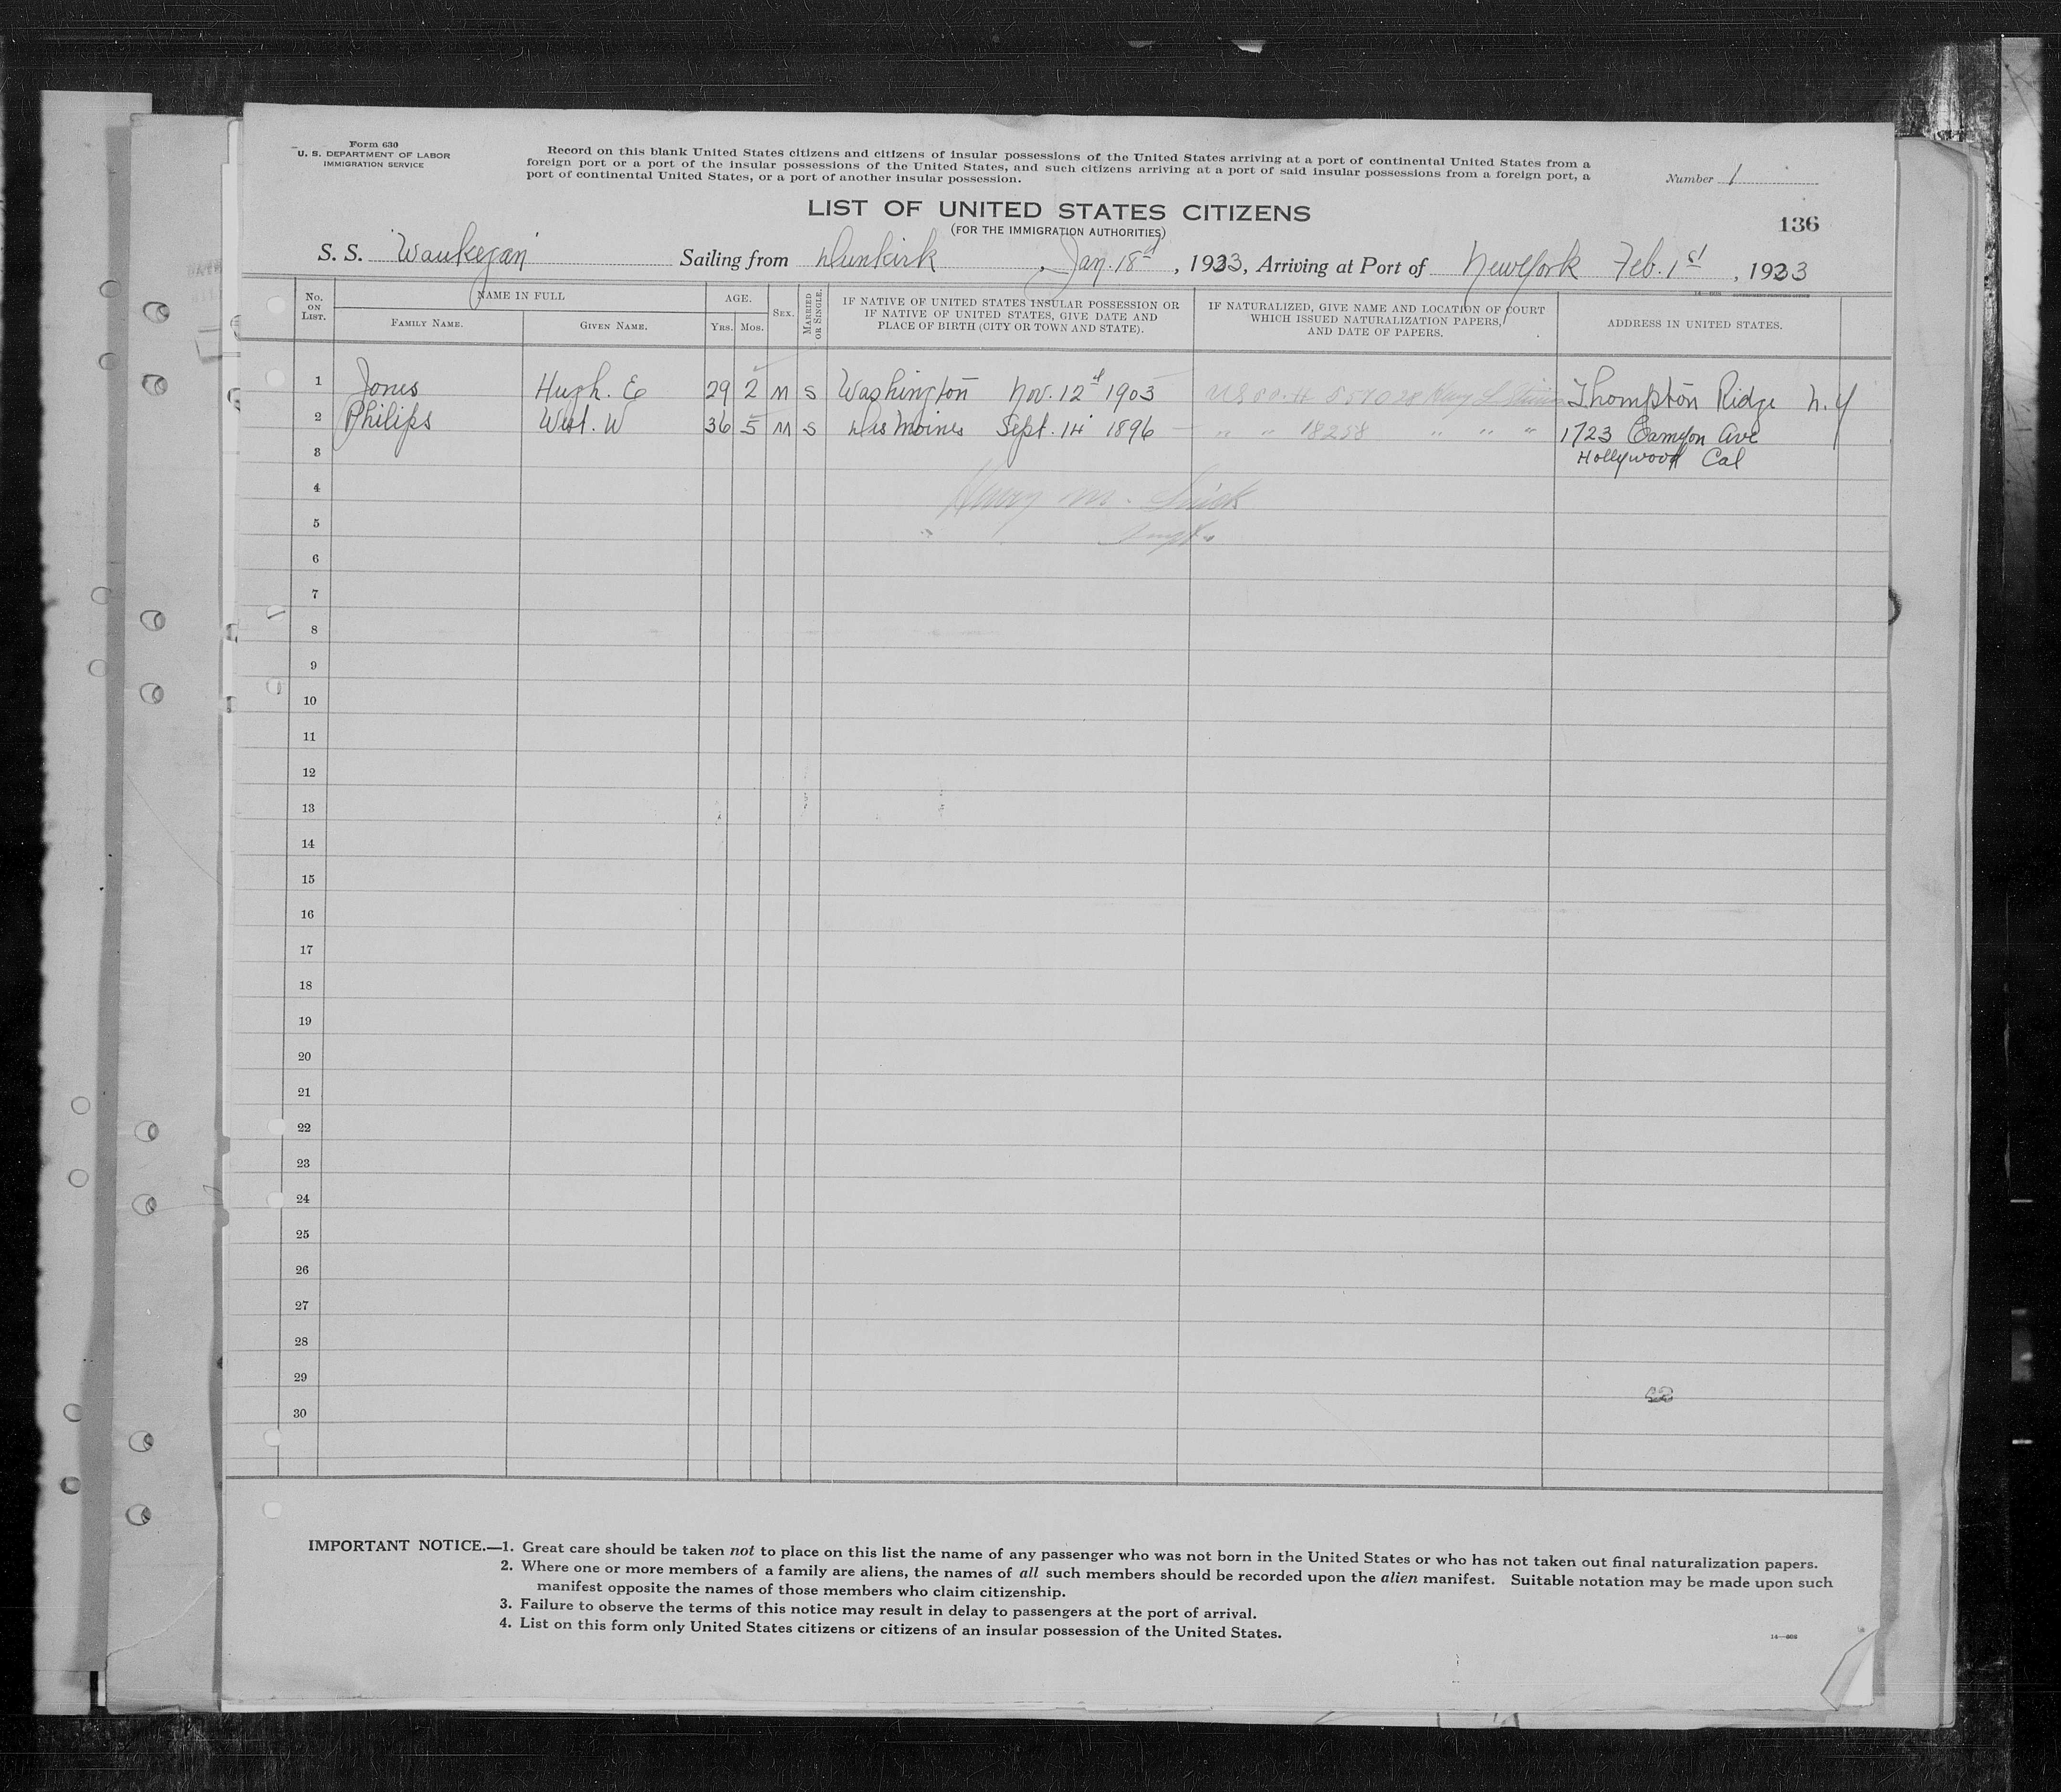 Form 630
U. S. DEPARTMENT OF LABOR
IMMIGRATION SERVICE
Record on this blank United States citizens and citizens of insular possessions of the United States arriving at a port of continental United States from a
foreign port or a port of the insular possessions of the United States, and such citizens arriving at a port of said insular possessions from a foreign port, a
port of continental United States, or a port of another insular possession.
Number 1
LIST OF UNITED STATES CITIZENS
(FOR THE IMMIGRATION AUTHORITIES)
136
S. S. "Waukegan" Sailing from Dunkirk, Jan. 18th, 1933, Arriving at Port of New York Feb. 1st, 1933
No. ON LIST. NAME IN FULL AGE. SEX. MARRIED OR SINGLE. IF NATIVE OF UNITED STATES INSULAR POSSESSION OR IF NATIVE OF UNITED STATES, GIVE DATE AND PLACE OF BIRTH (CITY OR TOWN AND STATE). IF NATURALIZED, GIVE NAME AND LOCATION OF COURT WHICH ISSUED NATURALIZATION PAPERS, AND DATE OF PAPERS. ADDRESS IN UNITED STATES.
FAMILY NAME. GIVEN NAME. YRS. MOS.
1 Jones Hugh. E 29 2 M S Washington Nov. 12 1903 Thompson Ridge N.Y
2 Philips West. W 36 5 M S Des Moines Sept. 14 1896 " " 18258 " " " 1723 Ave
3 Hollywood Cal
4 Harry M.
5
6
7
8
9
10
11
12
13
14
15
16
17
18
19
20
21
22
23
24
25
26
27
28
29
30
IMPORTANT NOTICE.—1. Great care should be taken not to place on this list the name of any passenger who was not born in the United States or who has not taken out final naturalization papers.
2. Where one or more members of a family are aliens, the names of all such members should be recorded upon the alien manifest. Suitable notation may be made upon such
manifest opposite the names of those members who claim citizenship.
3. Failure to observe the terms of this notice may result in delay to passengers at the port of arrival.
4. List on this form only United States citizens or citizens of an insular possession of the United States.